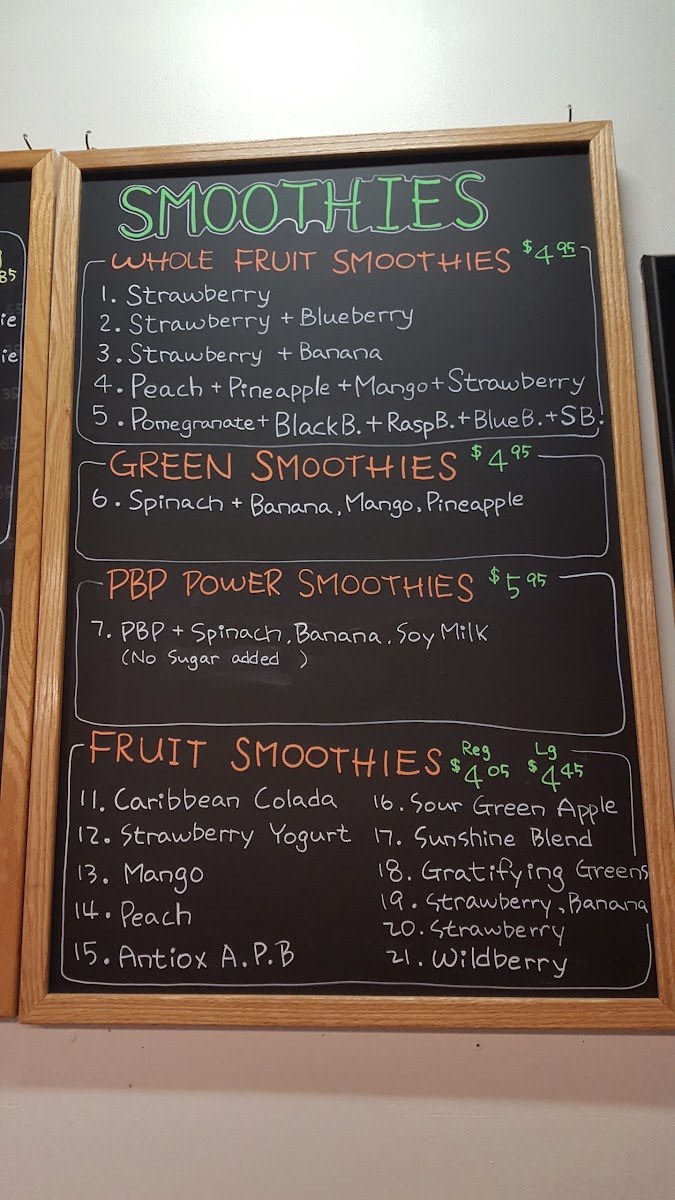 SMOOTHIES
WHOLE FRUIT SMOOTHIES $4.95
1. Strawberry
2. Strawberry + Blueberry
3. Strawberry + Banana
4. Peach + Pineapple + Mango + Strawberry
5. Pomegranate + BlackB. + RaspB. + BlueB. + SB.
GREEN SMOOTHIES $4.95
6. Spinach + Banana, Mango, Pineapple
PBP POWER SMOOTHIES $5.95
7. PBP + Spinach, Banana, Soy Milk
(No Sugar added )
FRUIT SMOOTHIES Reg $4.05 Lg $4.45
11. Caribbean Colada
12. Strawberry Yogurt
13. Mango
14. Peach
15. Antiox A.P.B
16. Sour Green Apple
17. Sunshine Blend
18. Gratifying Greens
19. Strawberry, Banana
20. Strawberry
21. Wildberry
85
ie
ie